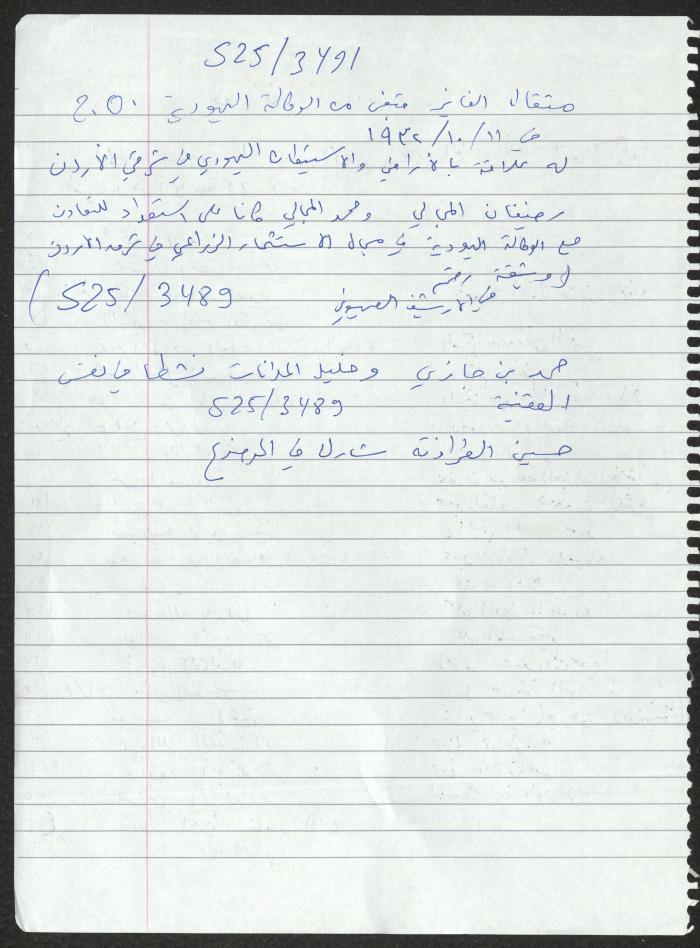 S25/3491
مثقال الفايز قبض من الوكالة اليهودية ٢٠٥٠
في ١٩٣٢/١٠/١١
له علاقة بالأراضي والاستيطان اليهودي في شرقي الأردن
رفيفان المجالي ومحمد المجالي كانا على استعداد للتعاون
مع الوكالة اليهودية في مجال الاستثمار الزراعي في شرق الاردن
(وثيقة رقم
في الأرشيف الصهيوني S25/3489)
حمد بن جازي وخليل المدانات نشطا في نفس
القضية S25/3489
حسين الطراونة شارك في الموضوع